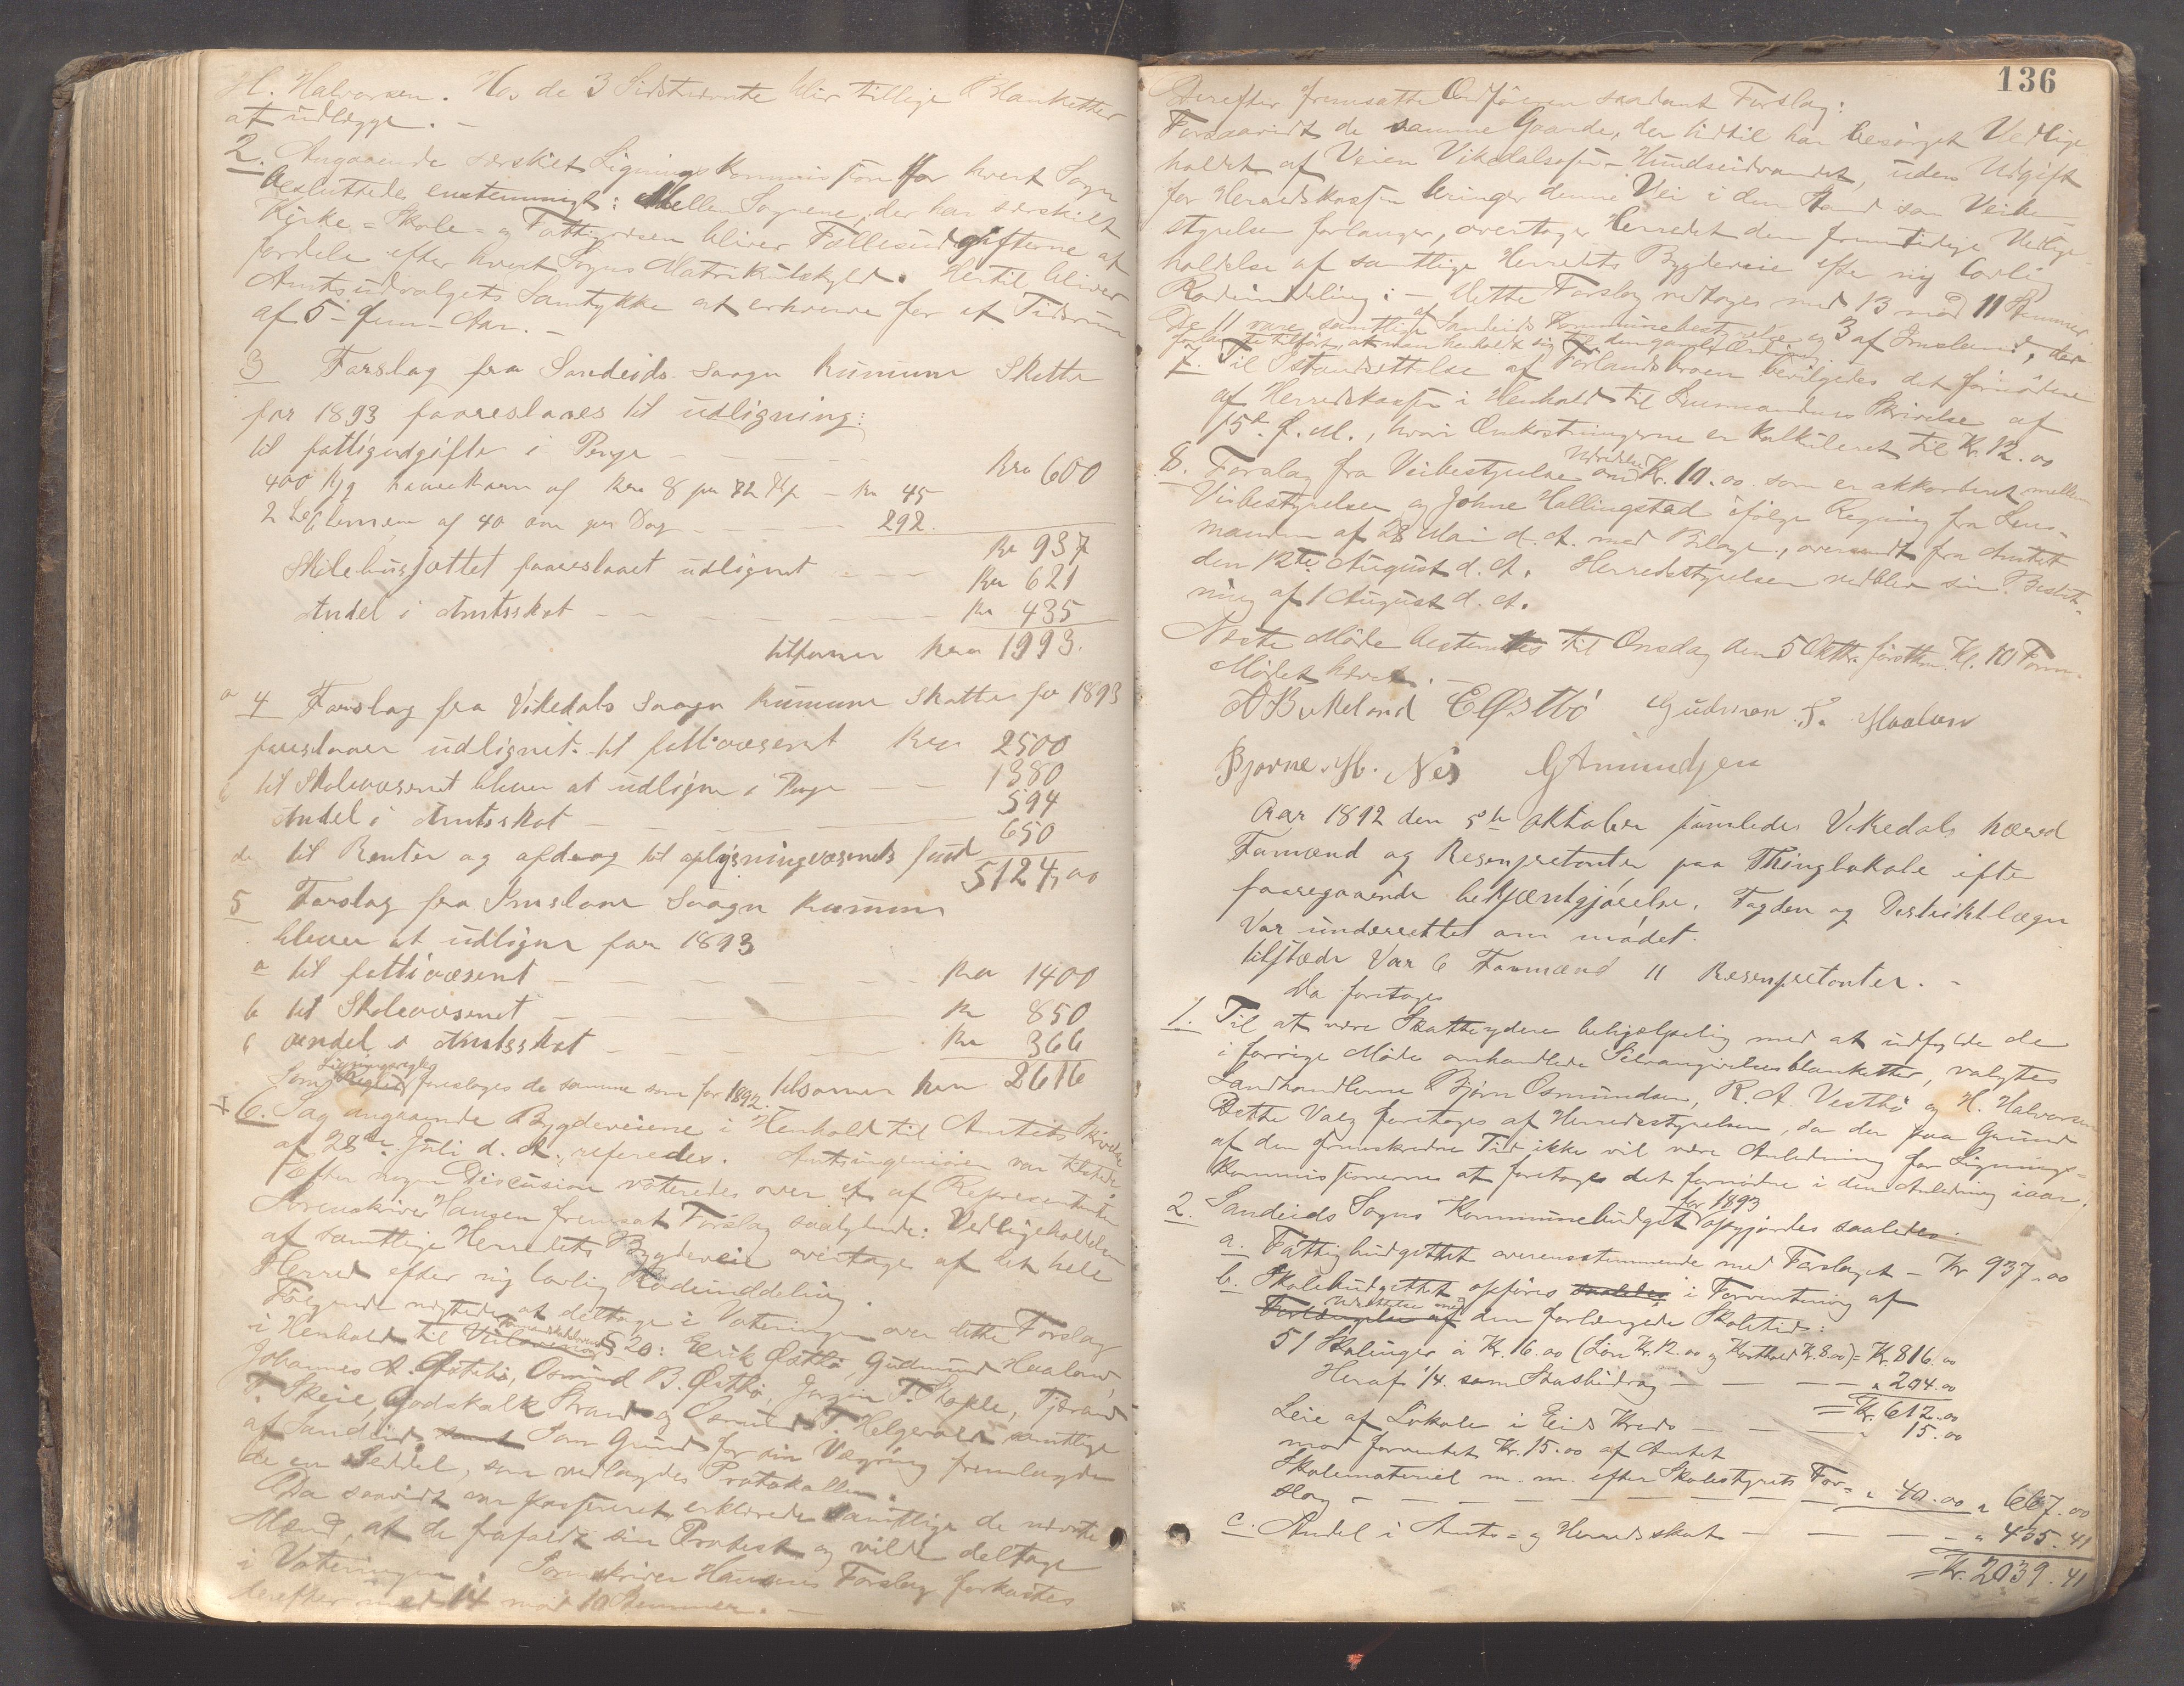 H. Halvorsen. Hos de 3 Sidstnævnte blir tillige Blanketter
at udlægge. –
2. Angaaende særskilt Ligningskommission for hvert Sogn
besluttede enstemmigt: Mellem Sognene, der har særskilt
Kirke= Skole= og Fattigvæsen bliver Fællesudgifterne at
fordele efter hvert Sogns Matrikulskyld. Hertil bliver
Amtsudvalgets Samtykke at erhverve for et Tidsrum
af 5 – fem – Aar. –
3 Forslag fra Sandeids Saagn Kumune Skatte
for 1893 faareslaaes til udligning:
til fattigudgifter i Penge – – – Kro 600
400 Kjg havrekorn af Kro 8 pr 72 Kg – Kr 45
2 Læglemmer af 40 øre per Dag – – 292.
Kr 937
Skolebusjettet faareslaaet udlignet – – – Kr 621
Andel i Amtsskat – – – Kr 435
tilsamen Kro 1993.
a 4 Forslag fra Vikedals Saagn Kumune Skatter for 1893
faareslaaer udlignet til fattivæsenet Kro 2500
b til Skolevæsenet bliver at udligne i Penge – – 1380
Andel i Amtsskat – – – 594
d til Renter og afdrag til oplysningvæsenets fund 650
5124,00
5 Forslag fra Imslans Saagn Kumune
bliver at udligne for 1893
a til fattivæsent – – – Kro 1400
b til Skolevæsenet – – – Kr 850
c andel i Amtsskat – – – Kr 366
Som Ligningsregler foreslages de samme som for 1892. tilsamen kro 2616
6. Sag angaaende Bygdeveiene i Henhold til Amtets Skrivelse
af 28de Juli d. A., referedes. Amtsingeniøren var tilstede.
Efter nogen Discusion voteredes over et af Repræsentanten
Sorenskriver Hansen fremsat Forslag saalydende: Vedligeholdelsen
af samtlige Herredets Bygdeveie overtages af det hele
Herred efter ny lovlig Rodeinddeling.
Følgende nægtede at deltage i Voteringen over dette Forslag
i Henhold til Formandskabslovens § 20: Eerik Østbø, Gudmund Healand,
Johannes A. Østebø, Osmund B. Østbø, Jørgin T. Stople, Tjæran
T. Skeie, Godskalk Strand og Osmund T. Helgevold samtlige
af Sandeid samt Som Grund for sin Vægring fremlagde
de en Seddel, som vedlagdes Protokollen.
Da saavidt var passeret, erklærede samtlige de nævnte
Mænd, at de frafaldt sin Protest og vilde deltage
i Voteringen. Sorenskriver Hansens Forslag forkastes
derefter med 14 mod 10 Stemmer. –
136
Derefter fremsatte Ordføreren saadant Forslag:
Forsaavidt de samme Gaarde, der hidtil har besørget Vedlige-
holdet af Veien Vikedalsosen – Hundseidvandet, uden Udgift
for Herredskassen bringer denne Vei i den Stand som Veibe-
styrelsen forlanger, overtager Herredet den fremtidige Vedlige-
holdelse af samtlige Herredets Bygdeveie efter ny lovlig
Rodeinddeling: – Dette Forslag vedtoges med 13 mod 11 Stemmer.
De 11 vare samtlige af Sandeids Kommunebestyrelse og 3 af Imsland, der
forlangte tilført, at man henholdt sig til den gamle Ordning.
7. Til Istandsættelse af Førlandsbroen bevilgedes det fornødne
af Herredskassen i Henhold til Lensmandens Skrivelse af
15de f. M., hvori Omkostningerne er kalkuleret til Kr. 12.00
8. Forslag fra Veibestyrelse om Udredelse Kr. 10.00 som er akkorderet mellem
Veibestyrelsen og Johne Hallingstad ifølge Regning fra Lens-
manden af 28 Mai d. A. med Bilage, oversendt fra Amtet
den 12te August d. A. Herredstyrelsen vedblev sin Beslut-
ning af 1 August d. A.
Næste Møde bestemtes til Onsdag den 5 Oktbr. førstkm. Kl. 10 Form.
Mødet hævet. –
A Birkeland E Østbø Gudmon S. Haalan
Bjorne H. Nes G Amundsen
Aar 1892 den 5te Oktober samledes Vikedals hærred
Formænd og Resenpretonter paa Thinglokale efter
faaregaaende bekjæntgjørelse. Fogden og Destriktlægen
Var underrettet om mødet.
tilstæde Var 6 Formænd 11 Resenpretonter. –
Da foretages
1. Til at være Skatteydere behjælpelig med at udfylde de
i forrige Møde omhandlede Selvangivelsesblanketter, valgtes
Landhandlerne Bjørn Osmundsen, R. A. Vestbø og H. Halvorsen
Dette Valg foretages af Herredsstyrelsen, da der paa Grund
af den fremskredne Tid ikke vil være Anledning for Lignings=
Kommissionerne at foretages det fornødne i den Anledning iaar.
2. Sandeids Sogns Kommunebudget for 1893 opgjordes saaledes:
a. Fattigbudgettet overensstemmende med Forslaget – Kr 937.00
b. Skolebudgettet opføres saaledes i Forventning af
Forlængelse af Udsættelse med den forlængede Skoletid:
51 Skoleuger à Kr. 16.00 (Løn Kr. 12.00 og Kosthold Kr. 8.00) = Kr. 816.00
Heraf 1/4 som Statsbidrag – – – " 204.00
= Kr. 612.00
Leie af Lokale i Eids Kreds – – – " 15.00
mod forventet Kr. 15.00 af Amtet
Skolemateriel m. m. efter Skolestyrets For=
slag – – – " 40.00 " 667.00
c. Andel i Amts= og Herredsskat – – – " 435.41
= Kr. 2039.41